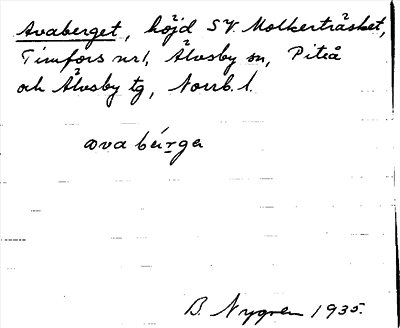 Avaberget, höjd SV. Molkerträsket,
Timfors nr 1, Älvsby sn, Piteå
och Älvsby tg, Norrb. l.
ava bárga
B. Nygren 1935.